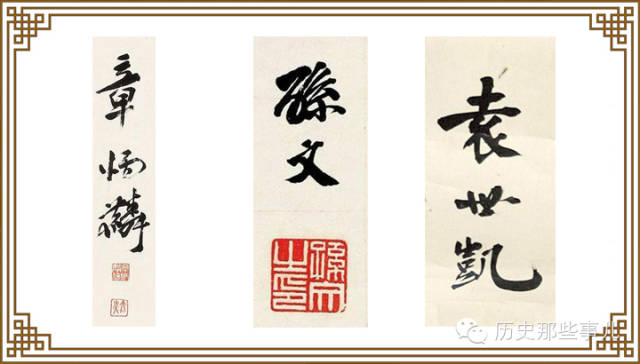 章炳麟
孫文
孫文之印
袁世凱
历史那些事儿